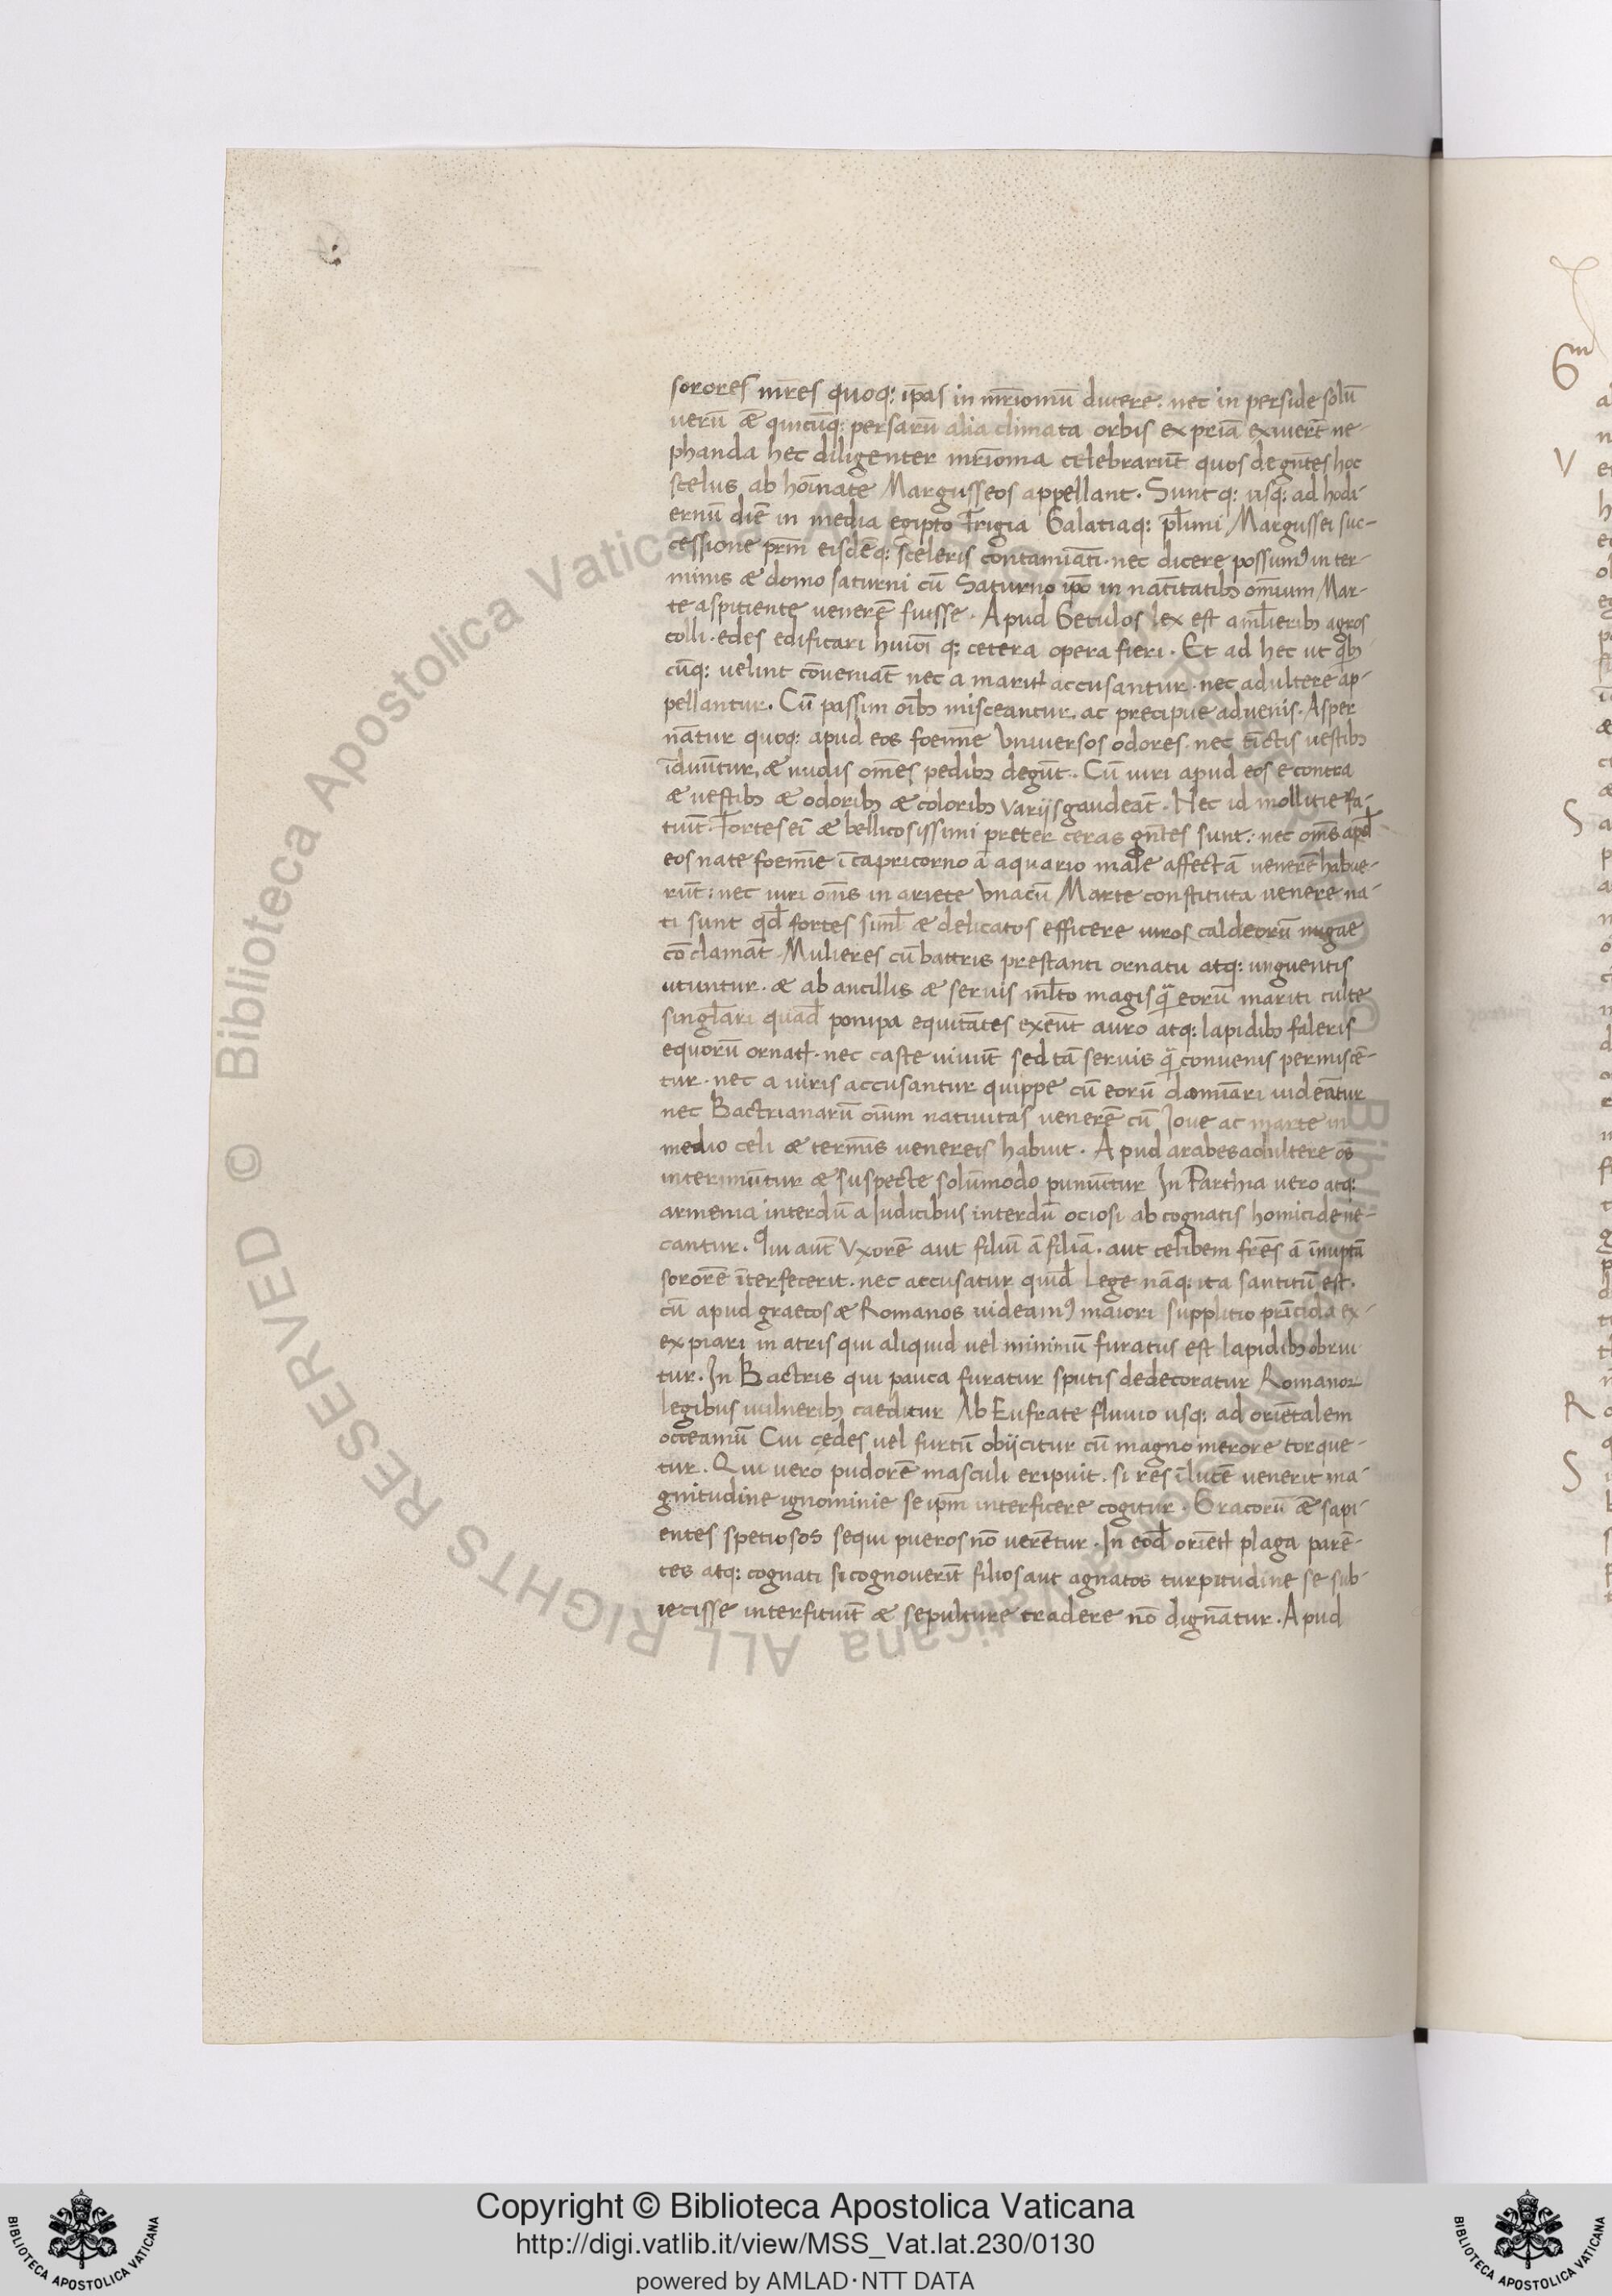 sorores mr̄es quoq: ip̄as in mr̄iomū ducere: nec in perside solū
uerū æ quicūq: persarū alia climata orbis ex pr̄iā exiuerīt ne-
phanda hec diligenter mr̄ioma celebrarūt quos de gn̄tes hoc
scelus ab hōinate Margusseos appellant. Sunt q: usq: ad hodi-
ernū diē in media egipto Frigia Galatiaq: pl̄imi Margussei suc-
cessione pr̄m eisdēq: sceleris contamīati. nec dicere possumꝰ in ter-
minis æ domo saturni cū Saturno ip̄o in natītatibꝫ om̄ium Mar-
te aspitiente uenerē fuisse. Apud Getulos lex est a ml̄ieribꝫ agros
colli. edes edificari huiōi q: cetera opera fieri. Et ad hec ut qb̄ꝫ
cūq: uelint cōueniāt nec a maritꝭ accusantur. nec adultere ap-
pellantur. Cū passim oīb̄ꝫ misceantur. ac precipue aduenis. Asper
nātur quoq: apud eos foemīe Vniuersos odores. nec tīctis uestibꝫ
īduūtur, æ nudis om̄es pedibꝫ degūt. Cū uiri apud eos econtra
æ uestibꝫ æ odoribꝫ æ coloribꝫ Varijs gaudeāt. Nec id mollitie fa-
tiūt. Fortes ei̅ æ bellicosissimi preter ceras gn̄tes sunt: nec om̄s apd̄
eos nate foemīe ī capricorno ā aquario male affectā uenerē habue-
rūt: nec uiri om̄s in ariete Vnacū Marte constituta uenere na-
ti sunt qd̄ fortes siml̄ æ delicatos efficere uiros caldeorū nugae
cōclamāt. Mulieres cū battris prestanti ornatu atq: unguentis
utuntur. æ ab ancillis æ seruis ml̄to magis q̄ eorū mariti culte
singl̄ari quad̄ pompa equitātes exeūt auro atq: lapidibꝫ faleris
equorū ornatꝭ. nec caste uiuūt sed tā seruis q̄ conuenis permiscē-
tur. nec a uiris accusantur quippe cū eorū domīari uideātur
nec Bactrianarū oīum natiuitas uenerē cū Ioue ac marte in
medio celi æ termīs uenereis habuit. Apud arabes adultere os̄
interimūtur æ suspecte solūmodo punūtur In Parthia uero atq:
armenia interdū a Iudicibus interdū ociosi ab cognatis homicide ne-
cantur. Qui aut̄ Vxorē aut filiū ā filiā. aut celibem fr̄es ā īnuptā
sororē īterfecerit. nec accusatur quid̄ Lege nāq: ita santitū est.
cū apud graecos æ Romanos uideamꝰ maiori supplitio pr̄icida ex-
expiari in atris qui aliquid uel minimū furatus est lapidibꝫ obrui
tur. In Bactris qui pauca furatur sputis dedecoratur Romanoꝝ
legibus uulneribꝫ caeditur Ab Eufrate fluuio usq: ad oriētalem
occeamū Cui cedes uel furtū obijcitur cū magno merore torque-
tur. Qui uero pudorē masculi eripuit. si res ī lucē uenerit ma-
gnitudine ignominie se ip̄m interficere cogitur. Gracorū æ sapi-
entes spetiosos sequi pueros nō uerētur. In eod̄ oriētꝭ plaga parē-
tes atq: cognati si cognouerīt filios aut agnatos turpitudine se sub-
iecisse interfitiūt æ sepulture tradere nō dignātur. Apud
Copyright © Biblioteca Apostolica Vaticana
http://digi.vatlib.it/view/MSS_Vat.lat.230/0130
powered by AMLAD·NTT DATA